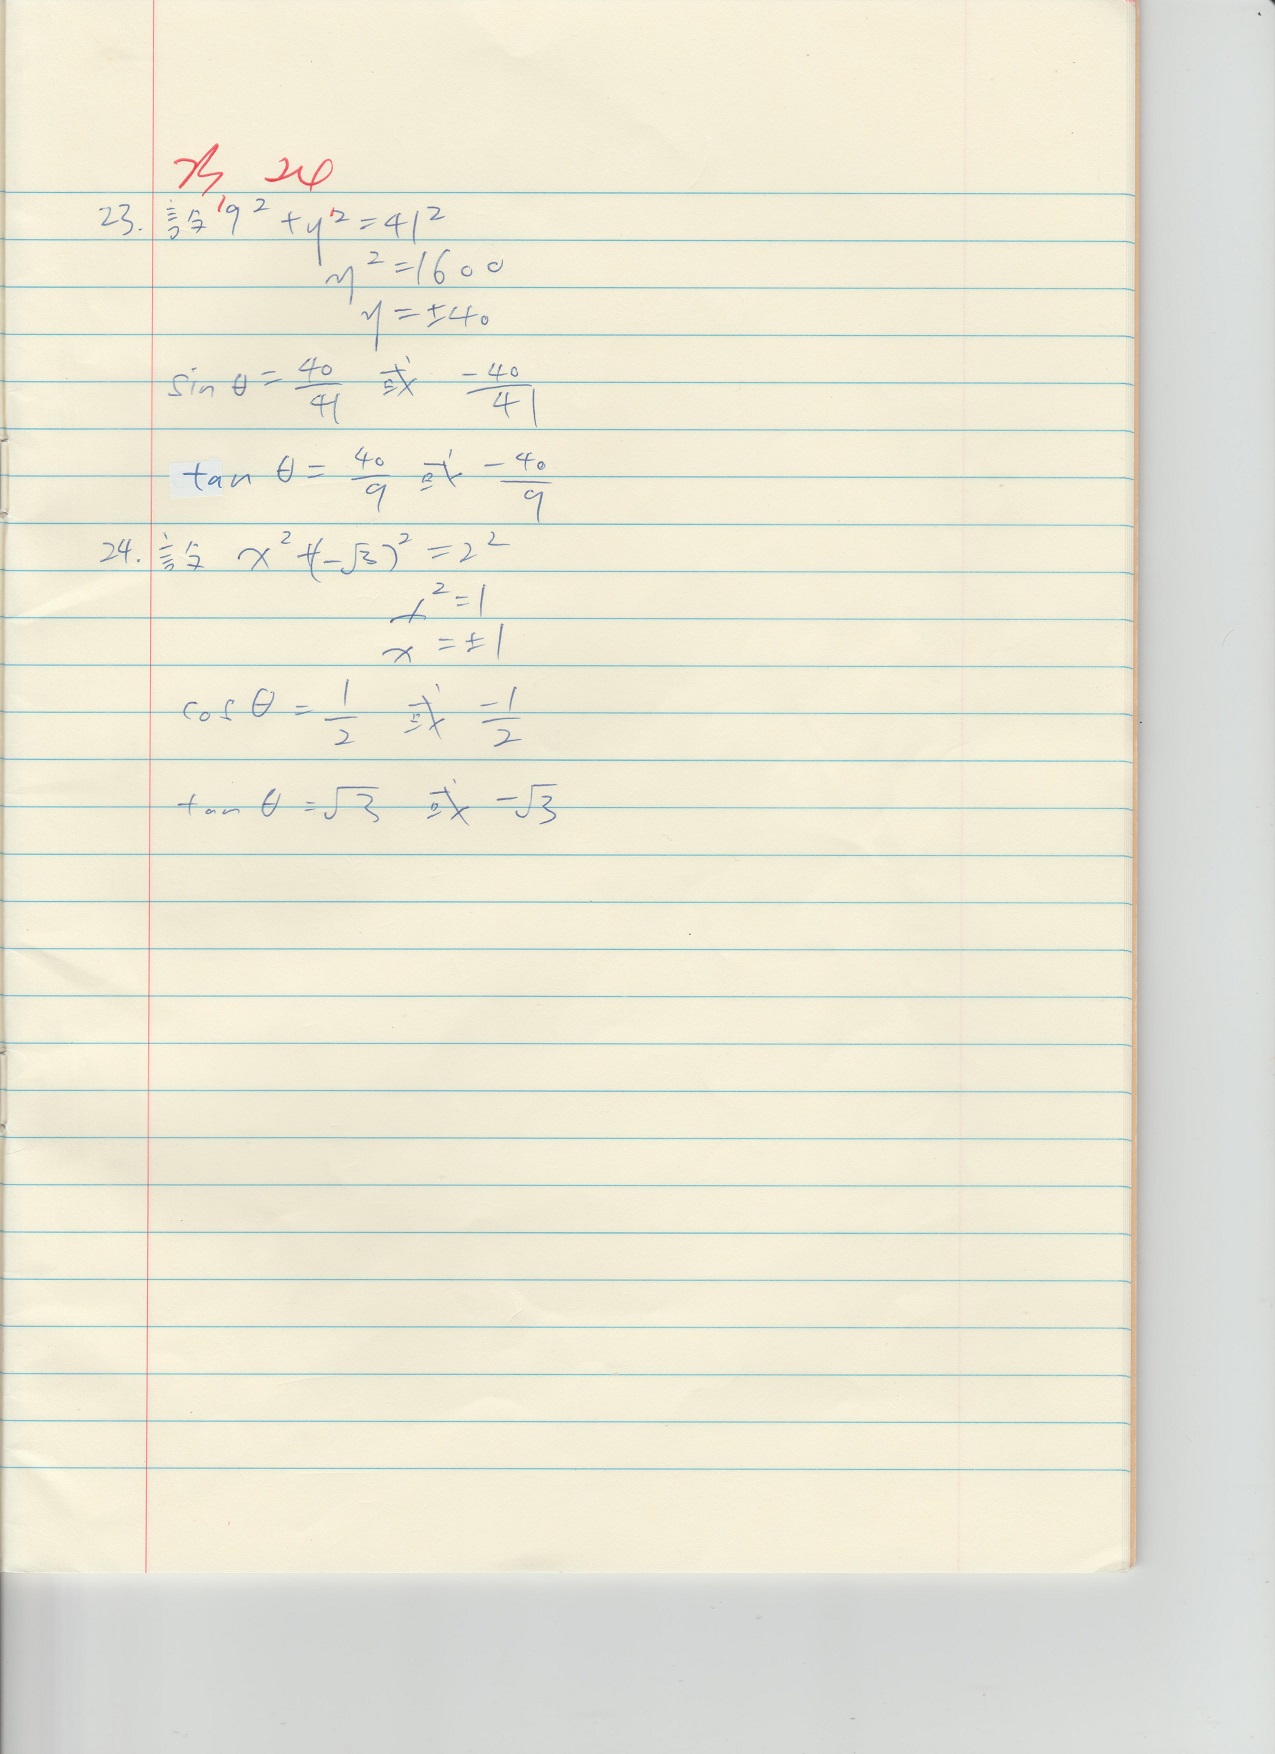 23 24
23. 設 9² + y² = 41²
y² = 1600
y = ±40
sin θ = 40/41 或 -40/41
tan θ = 40/9 或 -40/9
24. 設 x² + (-√3)² = 2²
x² = 1
x = ±1
cos θ = 1/2 或 -1/2
tan θ = √3 或 -√3